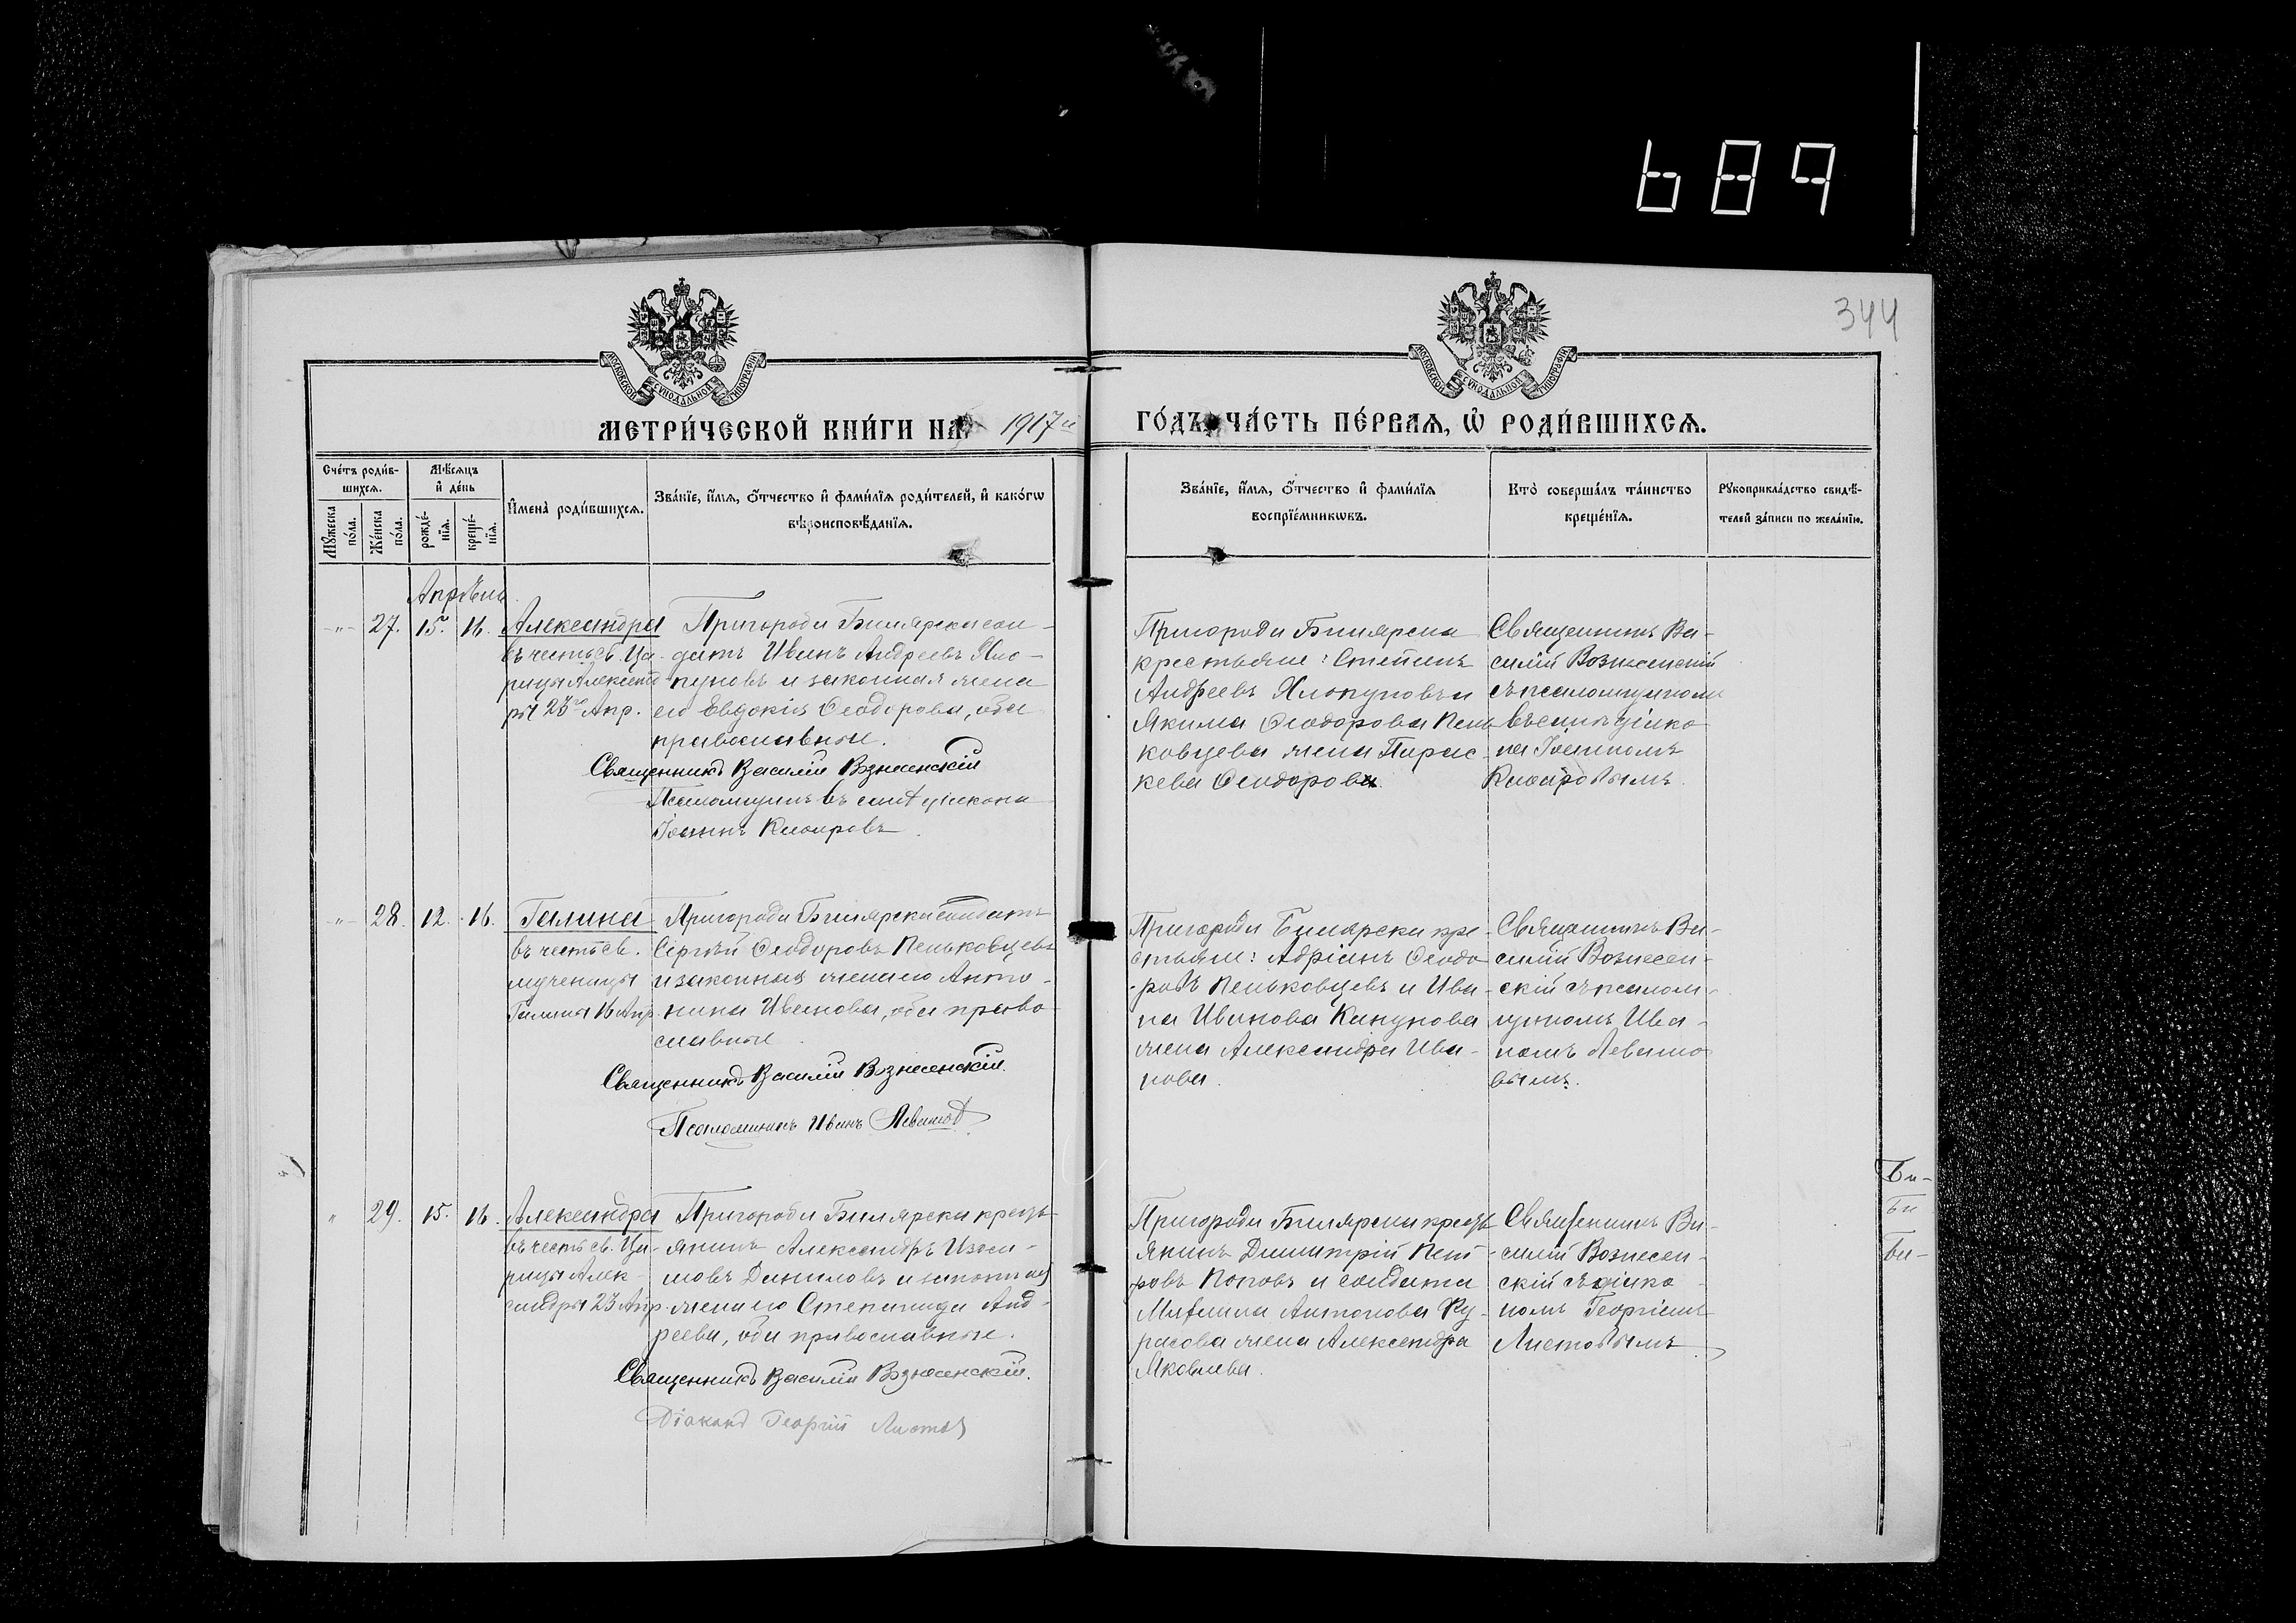 689
344
МОСКОВСКОЙ СѴНОДАЛЬНОЙ ТИПОГРАФІИ
МОСКОВСКОЙ СѴНОДАЛЬНОЙ ТИПОГРАФІИ
МЕТРИ́ЧЕСКОЙ КНИ́ГИ НА 1917й ГО́ДЪ ЧА́СТЬ ПЕ́РВАѦ, Ѡ҆ РОДИ́ВШИХСѦ.
Сче́тъ роди́в-
шихсѧ.
Мꙋ́жеска по́ла.
Же́нска по́ла.
Мѣ́сѧцъ и҆ де́нь
рожде́-
нїѧ.
креще́-
нїѧ.
И҆мена̀ роди́вшихсѧ.
Зва́нїе, и҆́мѧ, ѻ҆́тчество и҆ фами́лїѧ роди́телей, и҆ како́гѡ
вѣроисповѣ́данїѧ.
Зва́нїе, и҆́мѧ, ѻ҆́тчество и҆ фами́лїѧ
воспрїе́мникѡвъ.
Кто̀ соверша́лъ та́инство
креще́нїѧ.
Рꙋкоприкла́дство свидѣ́-
телей за́писи по жела́нїю.
Апрѣль
-"- 27. 15. 16.
Александра
въ честь св. Ца-
рицы Александ
ры 23го Апр.
Пригорода Билярска сол-
датъ Иванъ Андреевъ Хло-
пуновъ и законная жена
его Евдокія Ѳеодорова, оба
православные.
Священникъ Василій Вознесенскій
Псаломщикъ въ санѣ діакона
Іоаннъ
Пригорода Билярска
крестьяне: Степанъ
Андреевъ Хлопуновъ и
Якима Ѳеодорова Пень
ковцева жена Парас-
кева Ѳеодорова.
Священникъ Ва-
силій Вознесенскій
съ псаломщикомъ
въ санѣ діако-
на Іоанномъ
-"- 28. 12. 16.
Галина
въ честь св.
мученицы
Галины 16 Апр.
Пригорода Билярска солдатъ
Сергѣй Ѳеодоровъ Пеньковцевъ
и законная жена его Анто-
нина Иванова, оба право-
славные.
Священникъ Василій Вознесенскій.
Псаломщикъ Иванъ Левашовъ
Пригорода Билярска кре-
стьяне: Адріанъ Ѳеодо-
ровъ Пеньковцевъ и Ива-
на Иванова Канунова
жена Александра Ива-
нова.
Священникъ Ва-
силій Вознесен-
скій съ псалом-
щикомъ Ива-
номъ Левашо
вымъ.
" 29. 15. 16.
Александра
въ честь св. Ца-
рицы Алек-
сандры 23 Апр.
Пригорода Билярска кресть-
янинъ Александръ Изоси-
мовъ Даниловъ и законная
жена его Степанида Анд-
реева, оба православные.
Священникъ Василій Вознесенскій.
Діаконъ Георгій Листовъ
Пригорода Билярска кресть
янинъ Димитрій Пет-
ровъ Поповъ и солдата
Михаила Антонова Ку-
расова жена Александра
Яковлева.
Священникъ Ва-
силій Вознесен-
скій съ діако-
номъ Георгіемъ
Листовымъ
Би-
Би
Би-